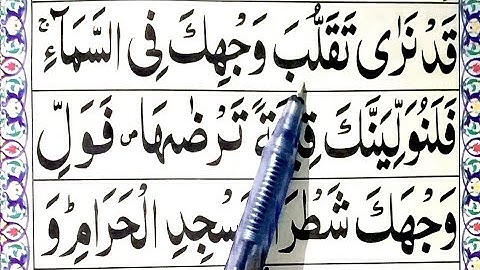 قَدْ نَرٰى تَقَلُّبَ وَجْهِكَ فِى السَّمَآءِ ۚ
فَلَنُوَلِّيَنَّكَ تَرْضٰىهَا ۖ فَوَلِّ
وَجْهَكَ شَطْرَ الْحَرَامِ ؕ وَ